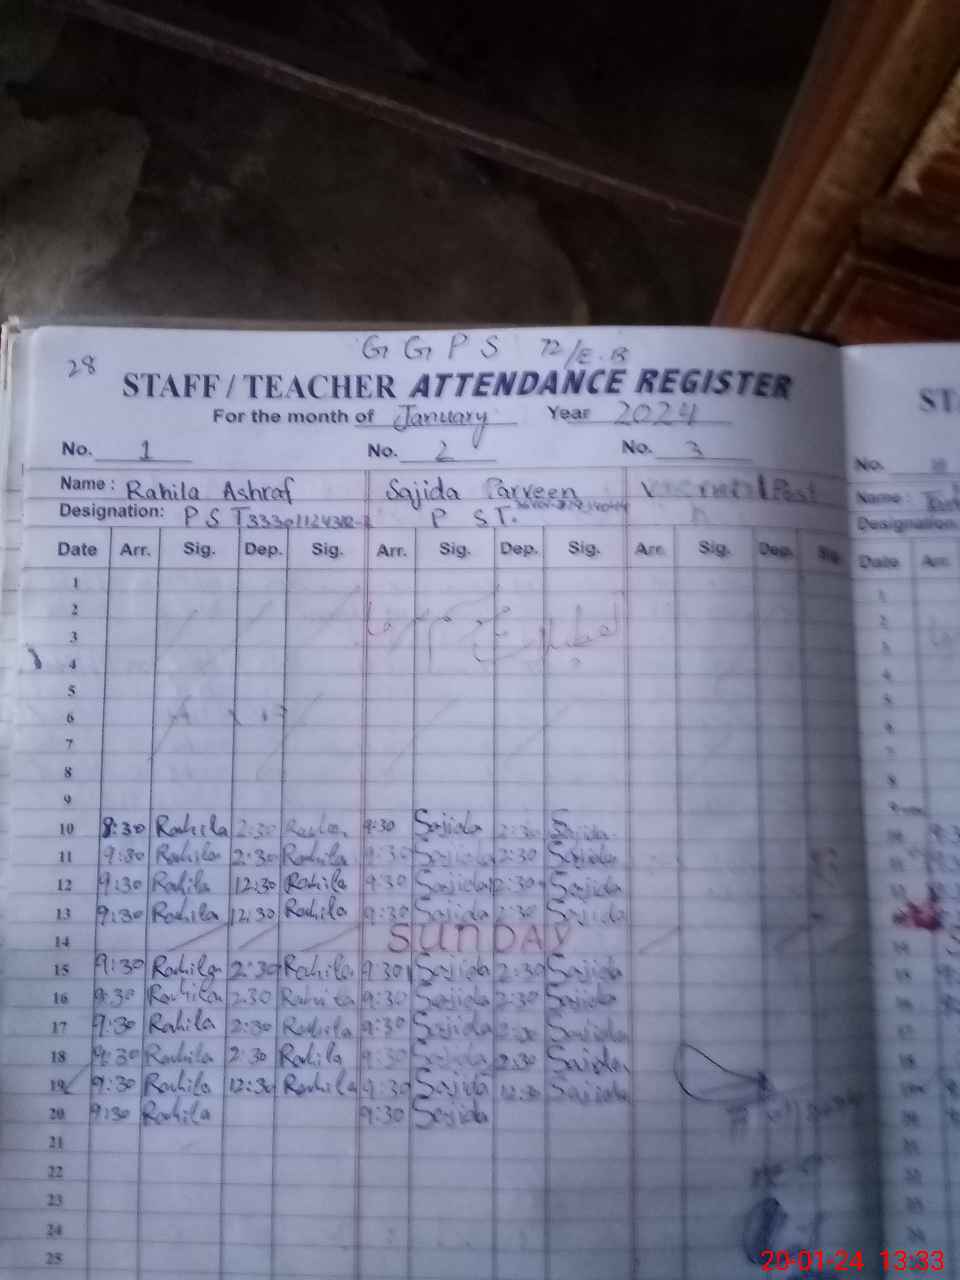 28
G G P S 72/E.B
STAFF / TEACHER ATTENDANCE REGISTER
For the month of January Year 2024
No. 1 No. 2 No. 3
Name : Rahila Ashraf Sajida Parveen Post
Designation: P S T P S T.
Date Arr. Sig. Dep. Sig. Arr. Sig. Dep. Sig. Arr. Sig. Dep. Sig.
1
2
3
4
5
6
7
8
9
10 8:30 Rahila 2:30 9:30 Sajida 2:30 Sajida
11 9:30 Rahila 2:30 Rahila 9:30 Sajida 2:30 Sajida
12 9:30 Rahila 12:30 Rahila 9:30 Sajida 12:30 Sajida
13 9:30 Rahila 12:30 Rahila 9:30 Sajida 2:30 Sajida
14 SUNDAY
15 9:30 Rahila 2:30 Rahila 9:30 Sajida 2:30 Sajida
16 9:30 Rahila 2:30 Rahila 9:30 Sajida 2:30 Sajida
17 9:30 Rahila 2:30 Rahila 9:30 Sajida 2:30 Sajida
18 9:30 Rahila 2:30 Rahila 9:30 Sajida 2:30 Sajida
19 9:30 Rahila 12:30 Rahila 9:30 Sajida 12:30 Sajida
20 9:30 Rahila 9:30 Sajida
21
22
23
24
25
ST
No.
Name :
Designation
Date Arr.
20-01-24 13:33